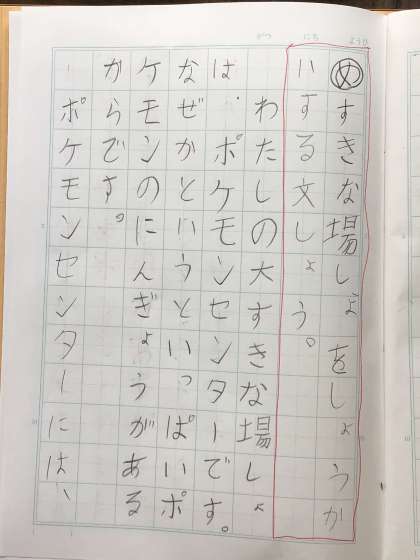 がつ にち ようび
めすきな場しょをしょうか
いする文しょう。
わたしの大すきな場しょ
は、ポケモンセンターです。
なぜかというといっぱいポ
ケモンのにんぎょうがある
からです。
ポケモンセンターには、